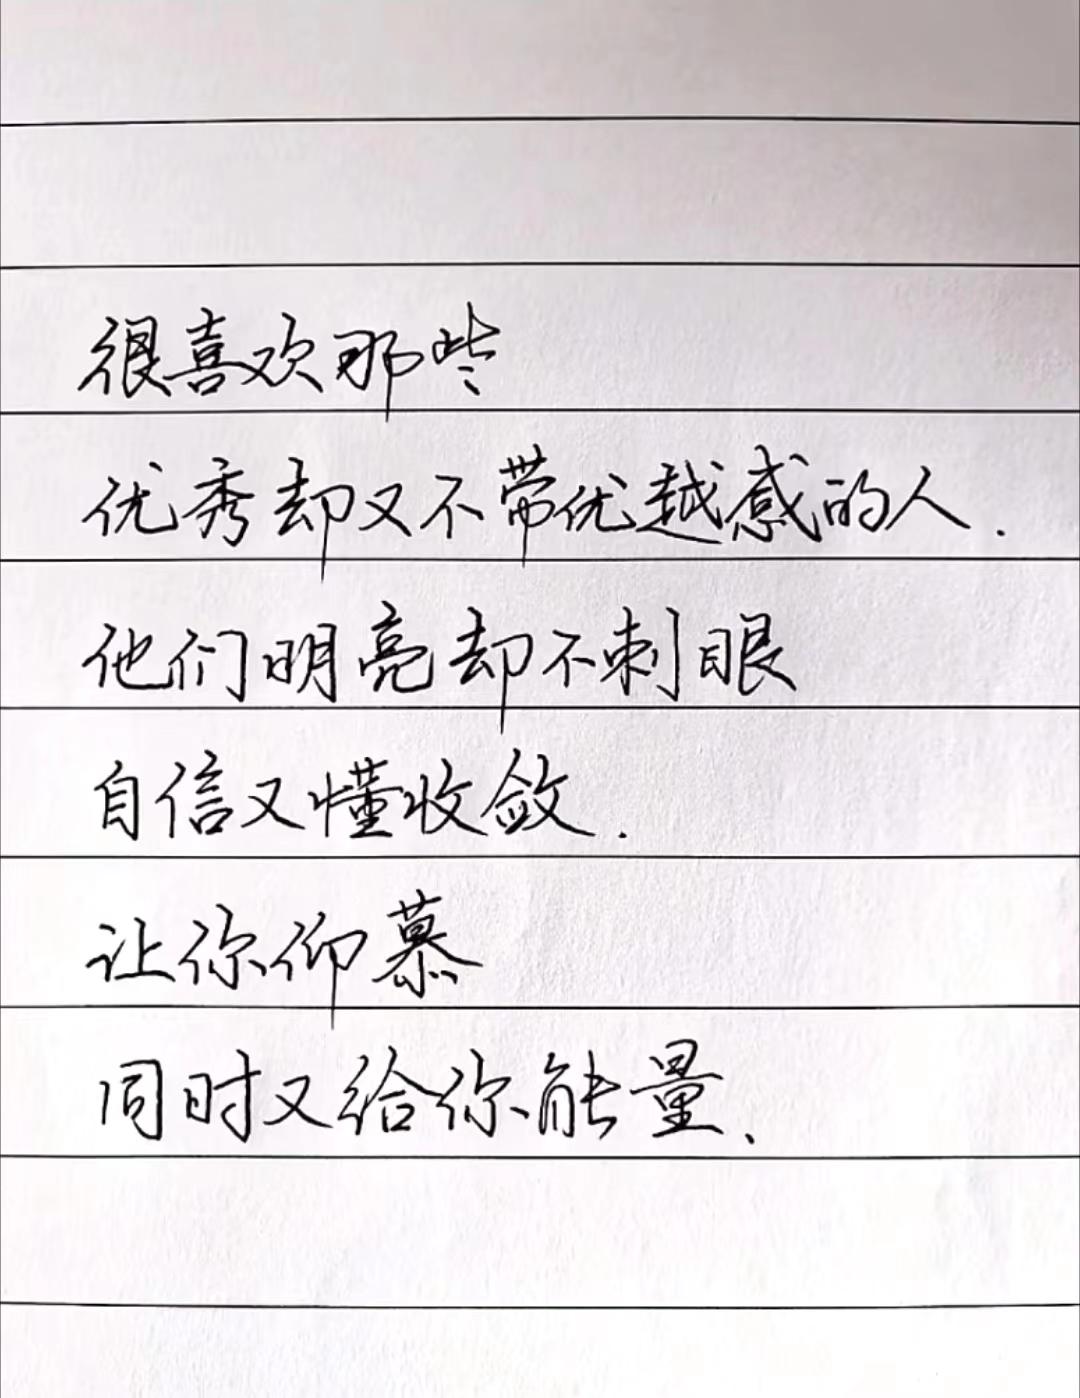 很喜欢那些
优秀却又不带优越感的人.
他们明亮却不刺眼
自信又懂收敛.
让你仰慕
同时又给你能量.